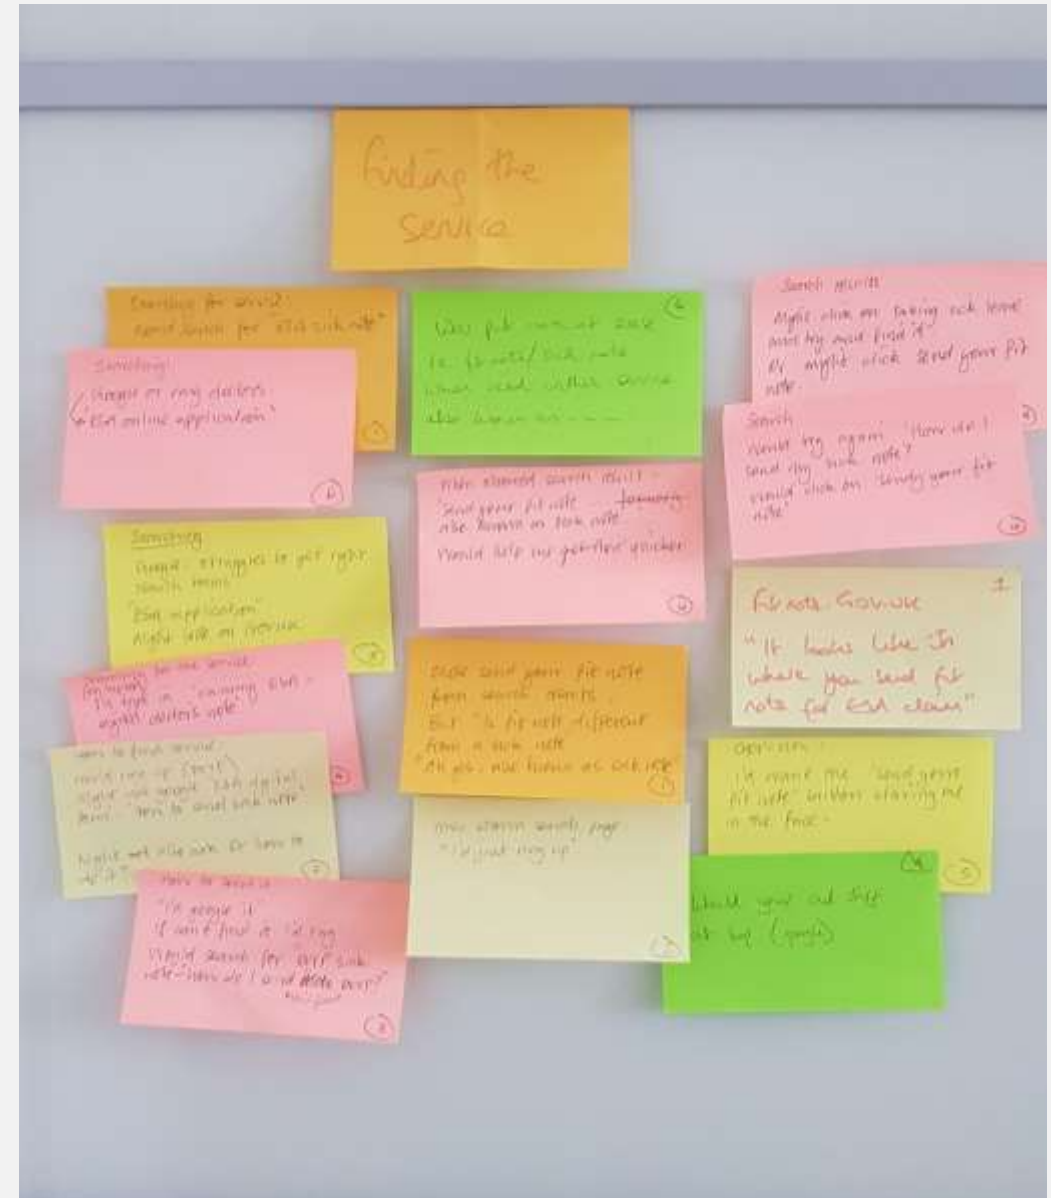 Finding the
service
Searching for service:
would search for "ESA sick note"
Searching:
Google or ring doctors
"ESA online application"
6
Searching
Google - struggles to get right
search terms
"ESA application"
Might look on GOV.UK
for the service
I'd type in "claiming ESA -
digital doctors note"
How to find service:
would ring up (part)
Might not google
"how to send sick note"
Might not also ask for how to
do it"
7
How to send it
"I'd google it
If can't find it I'd ring
Would search for DWP sick
note - how do I send
3
6
Was put
ie fit note/sick note
when used within service
also known as ----
When showed search result:
'Send your fit note
also known as sick note'
Would help me get there quicker
6
send your fit note
from search results
But "Is fit note different
from a sick note
"Oh yes, also known as sick note"
1
page
"I'd just ring up"
3
Search results
Might click on taking sick leave
and try and find it
Or might click send your fit
note
Search
Would try again 'How do I
send my sick note?
Would click on 'Send your fit
note'
1
Fit note GOV.UK
"It looks like I'm
where you send fit
note for ESA claim"
GOV.UK:
I'd want the 'send your
fit note' button staring me
in the face.
5
4
at top (google)